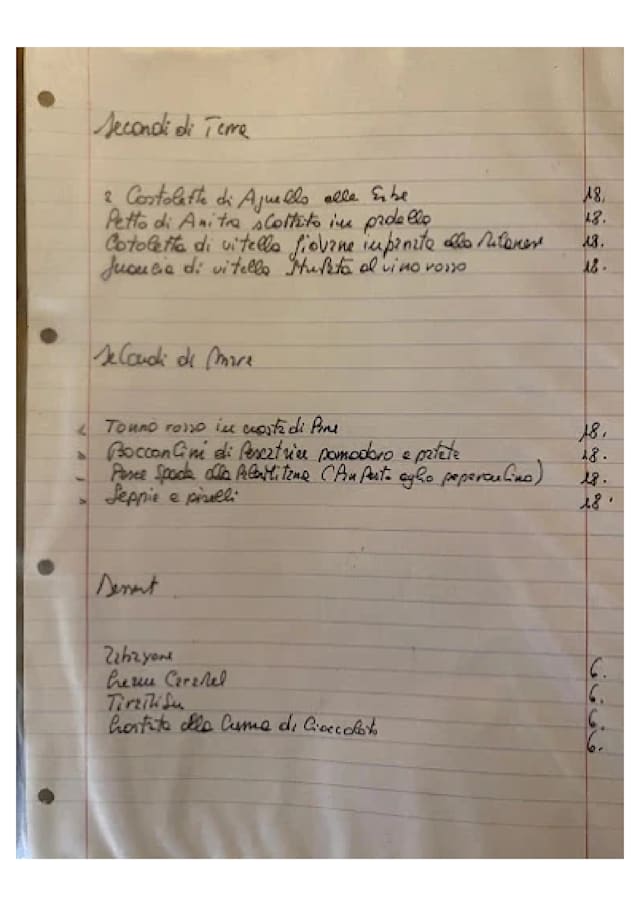 Secondi di Terra
2 Costolette di Agnello alle Erbe 18.
Petto di Anitra scottato in padella 18.
Cotoletta di vitello giovane impanata alla Milanese 18.
Guancia di vitello stufata al vino rosso 18.
Secondi di Mare
Tonno rosso in crosta di Pane 18.
Bocconcini di Pescatrice pomodoro e patate 18.
Pesce Spada alla Palermitana ( aglio peperoncino) 18.
Seppie e piselli 18.
Dessert
Zabayone 6.
Creme Caramel 6.
Tiramisu 6.
Crostata alla Crema di Cioccolato 6.